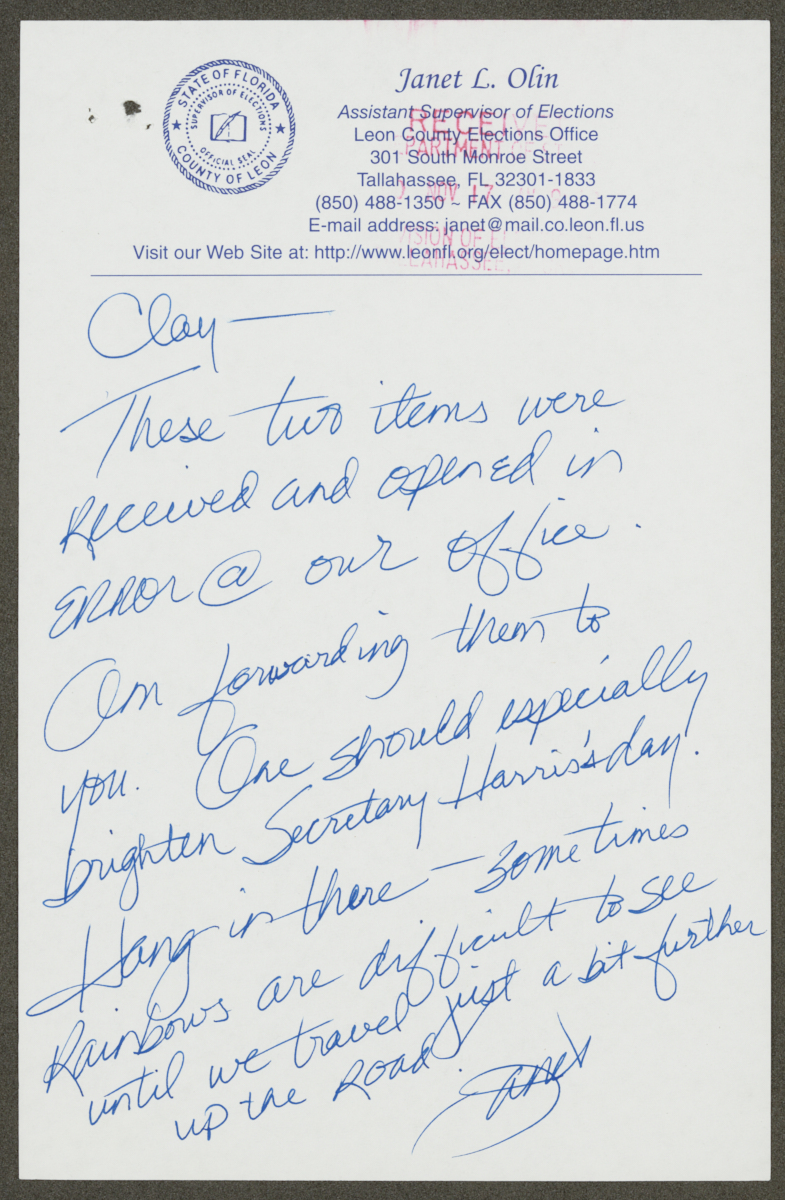 STATE OF FLORIDA
SUPERVISOR OF ELECTIONS
OFFICIAL SEAL
COUNTY OF LEON
Janet L. Olin
Assistant Supervisor of Elections
Leon County Elections Office
301 South Monroe Street
Tallahassee, FL 32301-1833
(850) 488-1350 ~ FAX (850) 488-1774
E-mail address: janet@mail.co.leon.fl.us
Visit our Web Site at: http://www.leonfl.org/elect/homepage.htm
RECEIVE
PARTMENT OF
NOV 17
ISION OF EL
LAHASSEE,
Clay —
These two items were
Received and opened in
ERROR @ our office.
Am forwarding them to
you. One should especially
brighten Secretary Harris's day!
Hang in there — sometimes
Rainbows are difficult to see
until we travel just a bit further
up the Road.
Janet